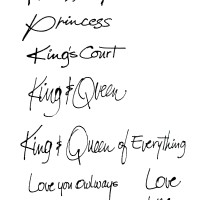 Princess
King's Court
King & Queen
King & Queen of Everything
Love you always Love